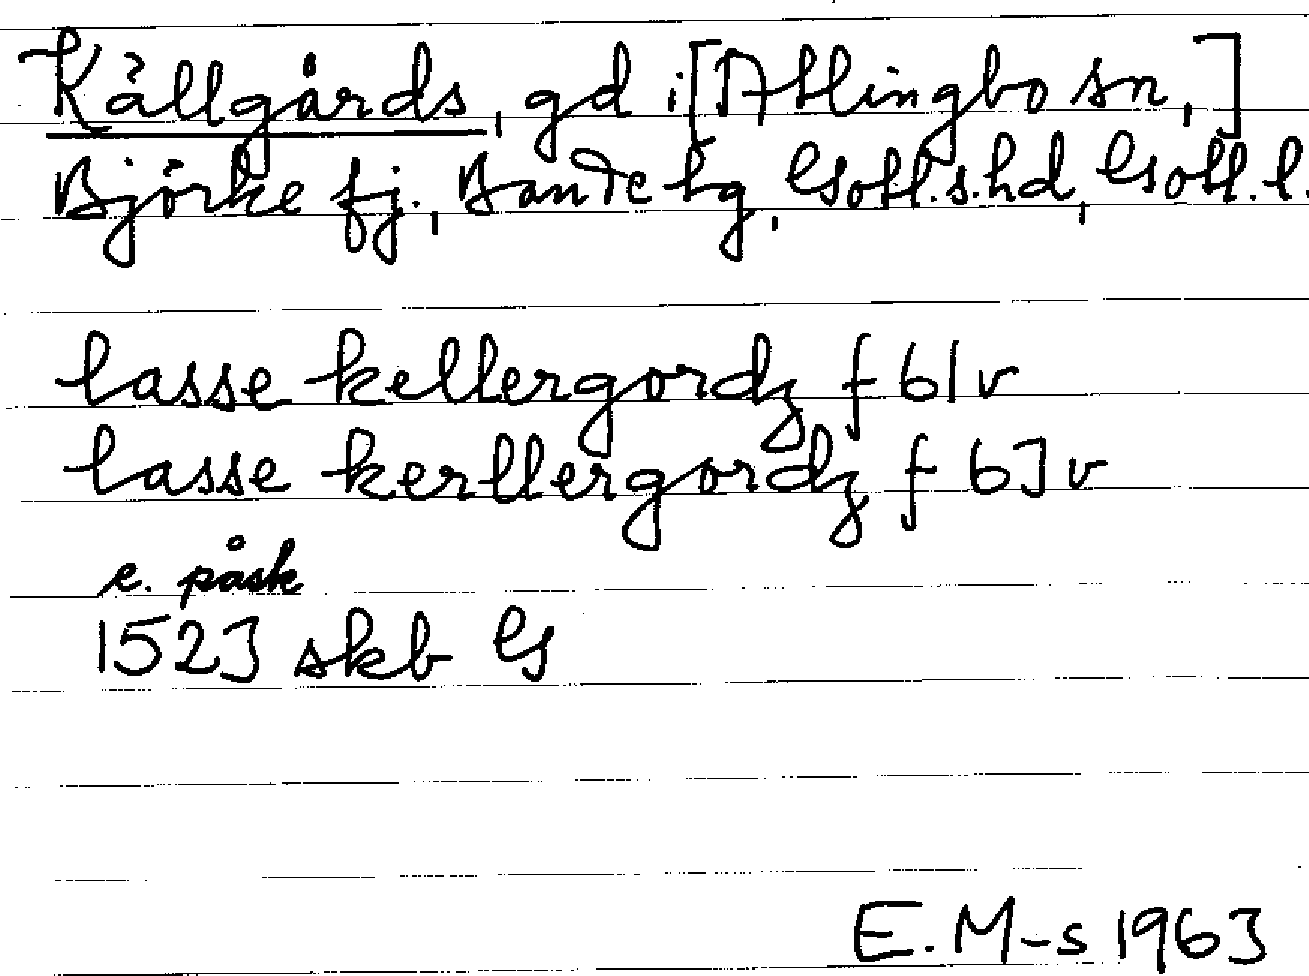 Källgårds, gd i [Atlingbo sn,]
Björke fj., Bande tg, Gotl.s.hd, Gotl.l.
lasse kellergordz f 61v
lasse kerllergordz f 63v
e. påsk
1523 skb G
E.M-s 1963